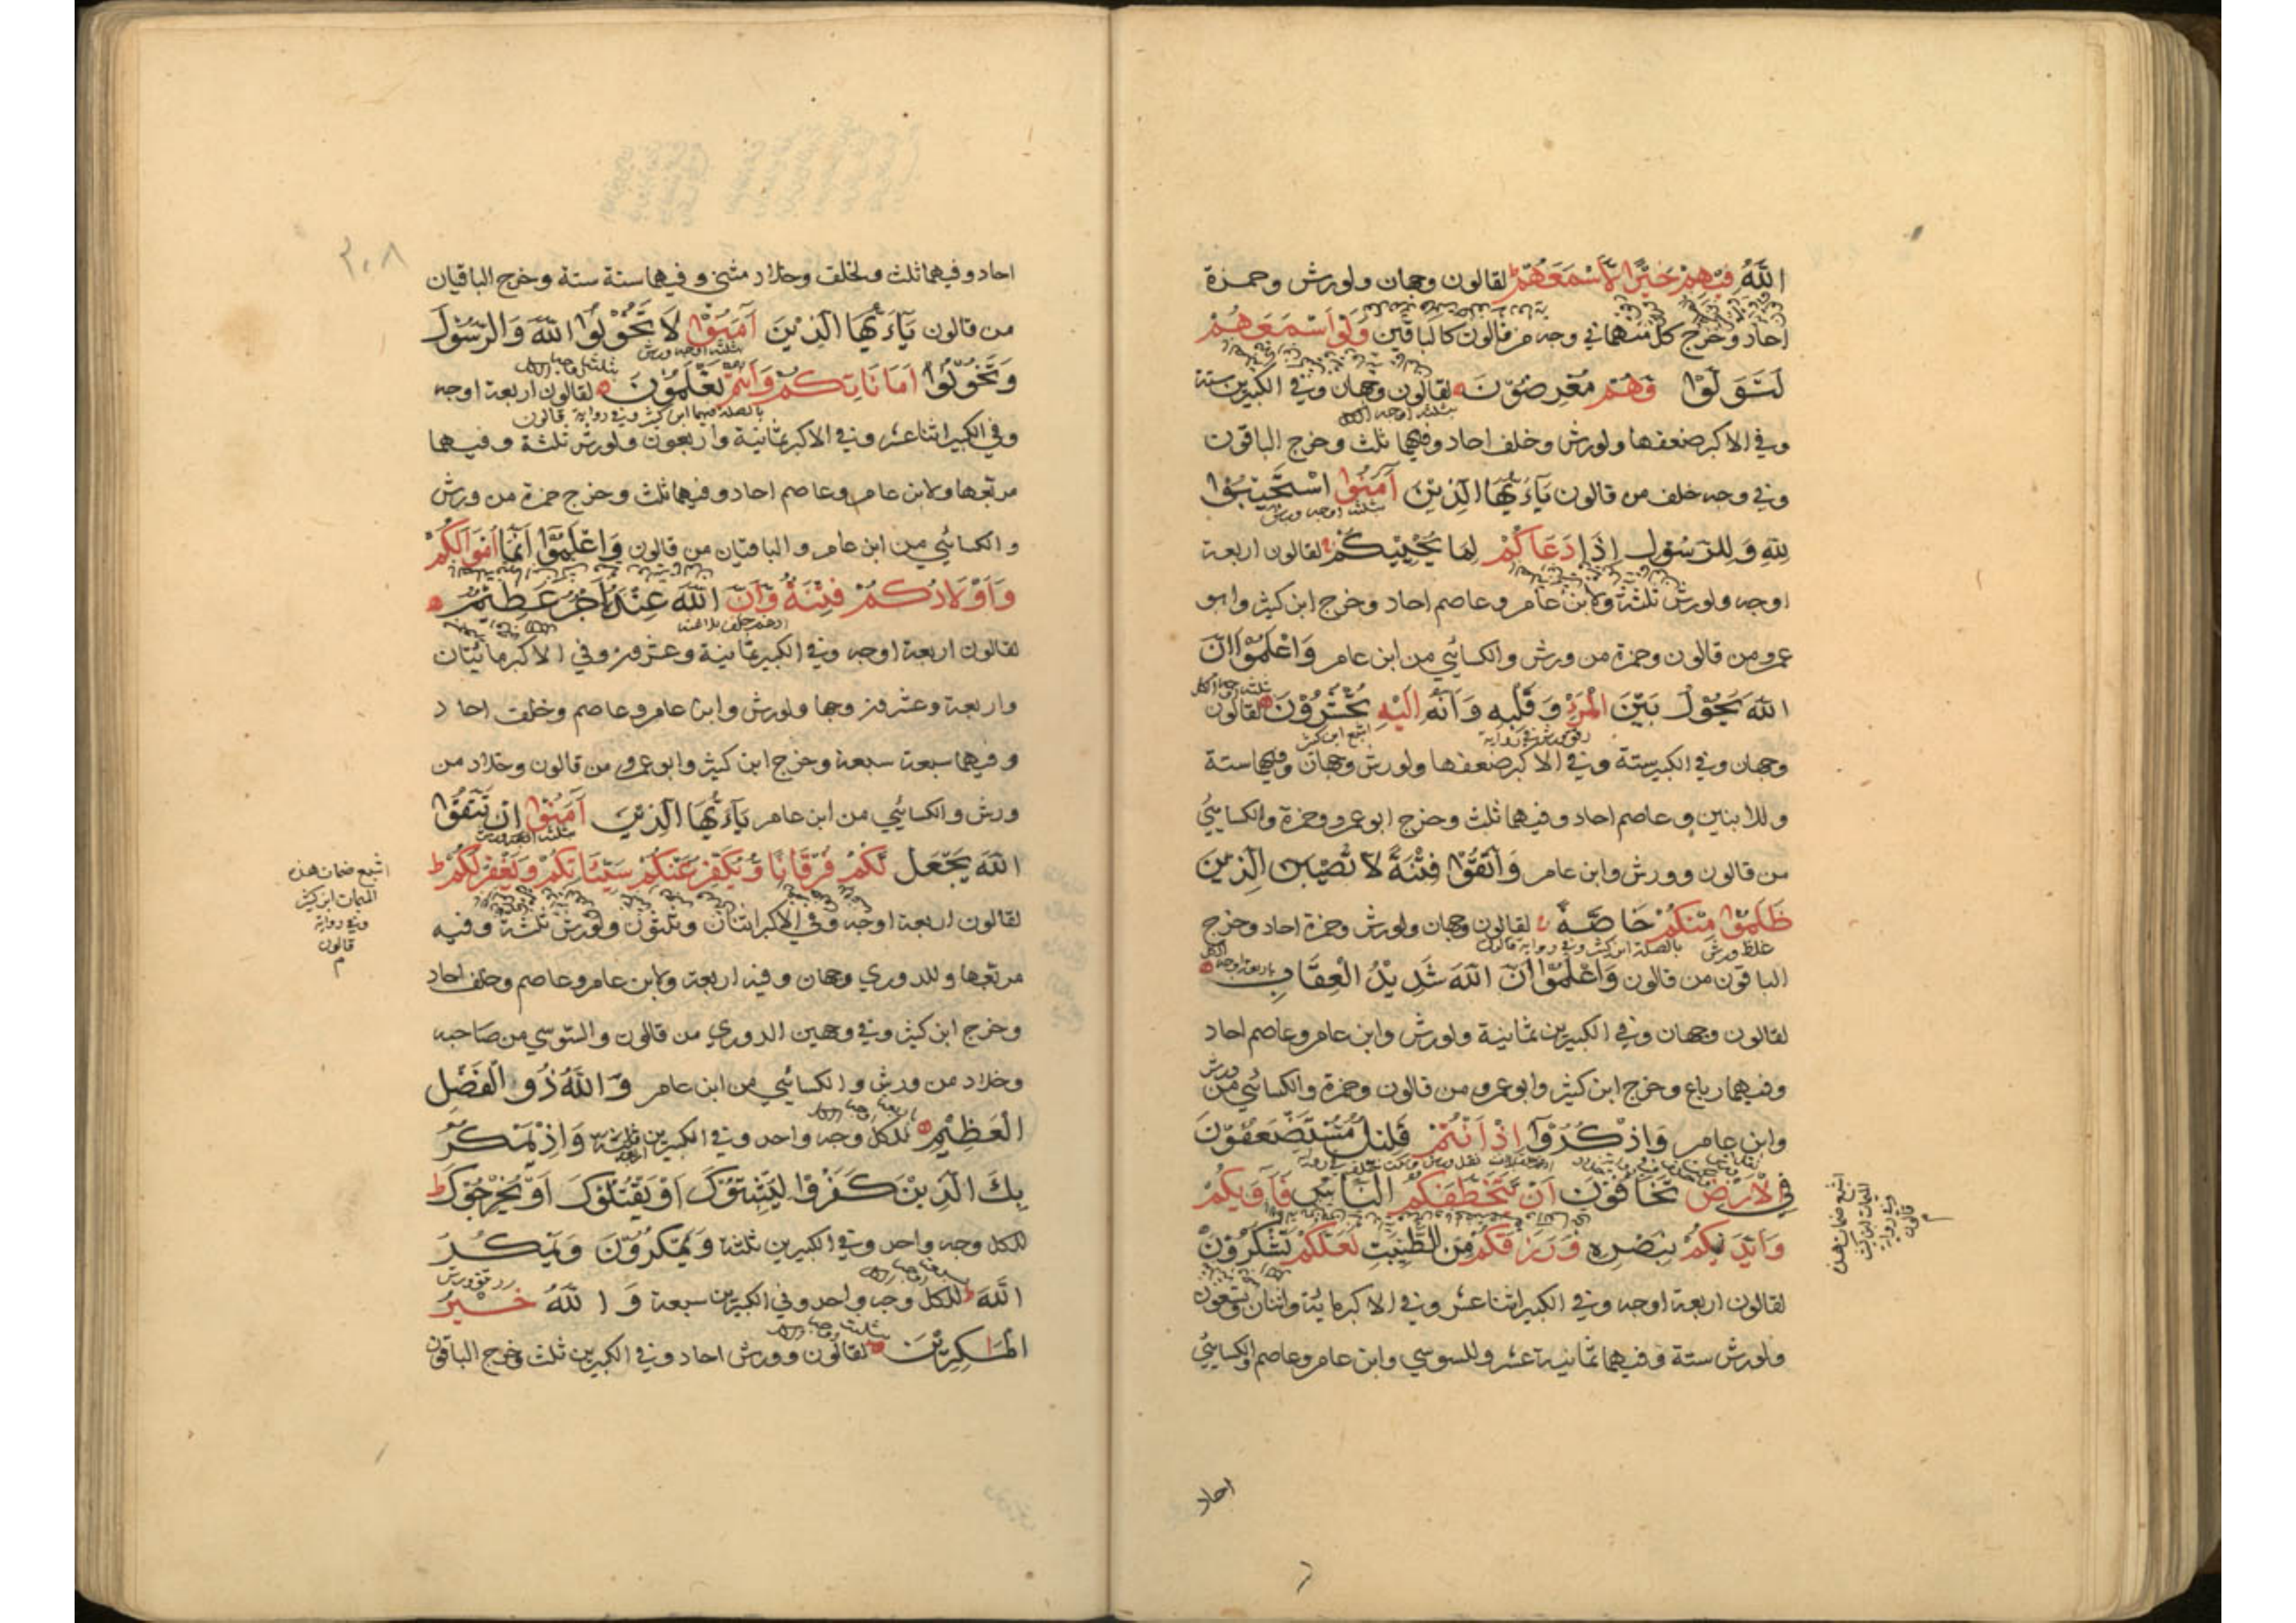 الله فيهم خيرا لأسمعهم لقالون وجهان ولورش وحمزة
احاد وخرج كل منهما في وجه من قالون كالباقين ولو اسمعهم
لتولوا وهم معرضون لقالون وجهان وفي الكبيرين ستة
بثلثة اوجه الكل
وفي الاكبر ضعفها ولورش وخلف احاد وفيهما ثلث وخرج الباقون
وفي وجه خلف من قالون ياءيها الذين آمنوا استجيبوا
بثلثة اوجه ورش
لله وللرسول اذا دعاكم لما يحييكم لقالون اربعة
اوجه ولورش ثلثة ولابن عامر وعاصم احاد وخرج ابن كثير وابو
عمرو من قالون وحمزة من ورش والكسائي من ابن عامر واعلموا ان
الله يحول بين المرء وقلبه وانه اليه تحشرون لقالون
اشبع ابن كثير
وجهان وفي الكبير ستة وفي الاكبر ضعفها ولورش وجهان وفيهما ستة
وللابنين وعاصم احاد وفيهما ثلث وخرج ابو عمرو وحمزة والكسائي
من قالون وورش وابن عامر واتقوا فتنة لا تصيبن الذين
ظلموا منكم خاصة لقالون وجهان ولورش وحمزة احاد وخرج
غلظ ورش بالصلة ابن كثير وفي رواية قالون
الباقون من قالون واعلموا ان الله شديد العقاب
باربعة اوجه الكل
لقالون وجهان وفي الكبيرين ثمانية ولورش وابن عامر وعاصم احاد
وفيهما رباع وخرج ابن كثير وابو عمرو من قالون وحمزة والكسائي من ورش
وابن عامر واذكروا اذ انتم قليل مستضعفون
في الارض تخافون ان يتخطفكم الناس فآويكم
وايديكم بنصره ورزقكم من الطيبت لعلكم تشكرون
لقالون اربعة اوجه وفي الكبير اثنا عشر وفي الاكبر مائة واثنان وتسعون
ولورش ستة وفيهما ثمانية عشر وللسوسي وابن عامر وعاصم والكسائي
احاد
اشبع ضمات هذه
الميمات ابن كثير
وفي رواية
قالون
٢٠٨
احاد وفيهما ثلث ولخلف وخلاد مثنى وفيهما ستة ستة وخرج الباقيان
من قالون ياءيها الذين آمنوا لا تخونوا الله والرسول
بثلثة اوجه ورش
وتخونوا اماناتكم وانتم تعلمون لقالون اربعة اوجه
بالصلة فيهما ابن كثير وفي رواية قالون
وفي الكبير اثنا عشر وفي الاكبر ثمانية واربعون ولورش ثلثة وفيهما
مربعها ولابن عامر وعاصم احاد وفيهما ثلث وخرج حمزة من ورش
والكسائي من ابن عامر والباقيان من قالون واعلموا انما اموالكم
واولادكم فتنة وان الله عنده اجر عظيم
ادغم خلف بلا غنة
لقالون اربعة اوجه وفي الكبير ثمانية وعشرون وفي الاكبر مائتان
واربعة وعشرون وجها ولورش وابن عامر وعاصم وخلف احاد
وفيهما سبعة سبعة وخرج ابن كثير وابو عمرو من قالون وخلاد من
ورش والكسائي من ابن عامر ياءيها الذين آمنوا ان تتقوا
بثلثة اوجه ورش
الله يجعل لكم فرقانا ويكفر عنكم سيئاتكم ويغفر لكم
لقالون اربعة اوجه وفي الاكبر اثنان وثلثون ولورش ثلثة وفيه
مربعها وللدوري وجهان وفيه اربعة ولابن عامر وعاصم وخلف احاد
وخرج ابن كثير وفي وجهين الدوري من قالون والسوسي من صاحبه
وخلاد من ورش والكسائي من ابن عامر والله ذو الفضل
العظيم للكل وجه واحد وفي الكبيرين اربعة واذ يمكر
بك الذين كفروا ليثبتوك او يقتلوك او يخرجوك
للكل وجه واحد وفي الكبيرين ثلثة ويمكرون ويمكر
رقق ورش
الله للكل وجه واحد وفي الكبيرين سبعة والله خير
الماكرين لقالون وورش احاد وفي الكبيرين ثلث وخرج الباقون
اشبع ضمات هذه
الميمات ابن كثير
وفي رواية
قالون
م